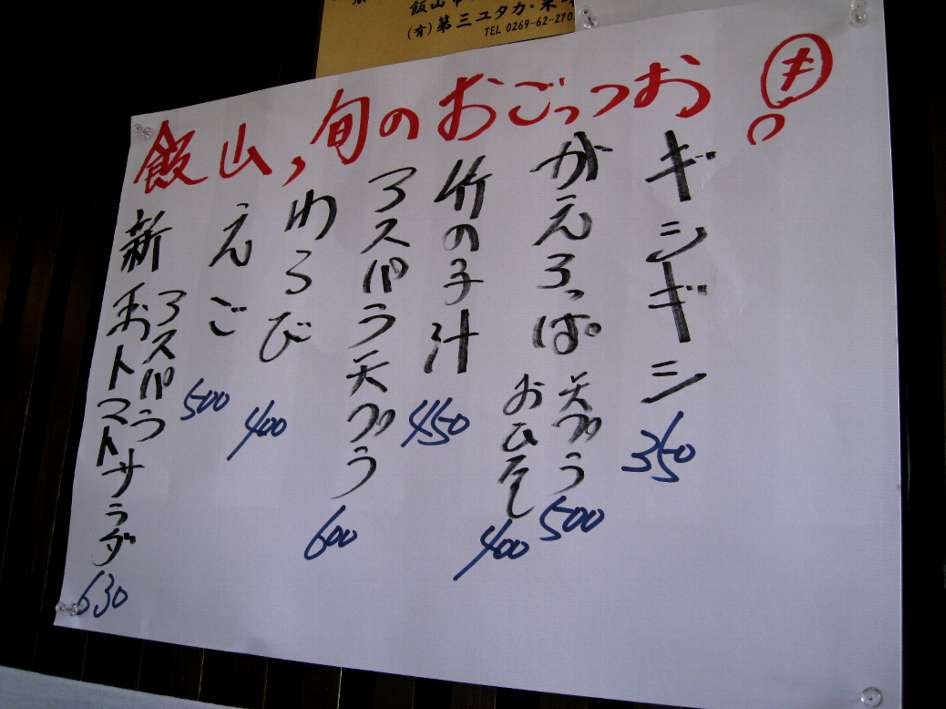 飯山市
(有)第三ユタカ・栄
TEL 0269-62-270
飯山、旬のおごっつお
ギシギシ 350
がえろっぱ 天プラ 500
おひたし 400
竹の子汁 450
アスパラ天プラ 600
わらび 400
えご 500
新玉トマトサラダ
アスパラ
630